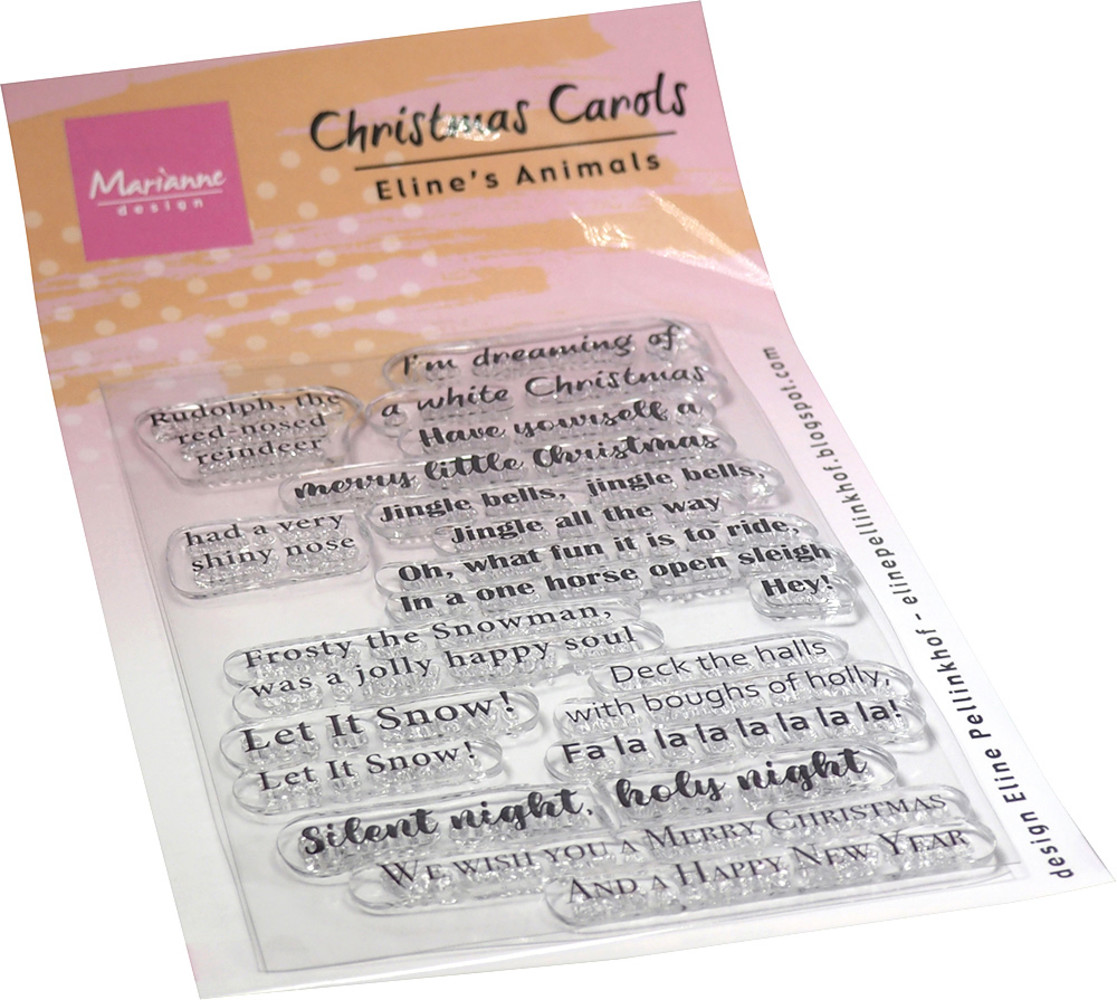 Christmas Carols
Eline's Animals
Marianne
design
I'm dreaming of
a white Christmas
Rudolph, the
red-nosed
reindeer
Have yourself a
merry little Christmas
Jingle bells, jingle bells,
Jingle all the way
had a very
shiny nose
Oh, what fun it is to ride,
In a one horse open sleigh
Hey!
Frosty the Snowman,
was a jolly happy soul
Deck the halls
with boughs of holly,
Fa la la la la la la la!
Let It Snow!
Let It Snow!
Silent night, holy night
We wish you a Merry Christmas
And a Happy New Year
design Eline Pellinkhof - elinepellinkhof.blogspot.com